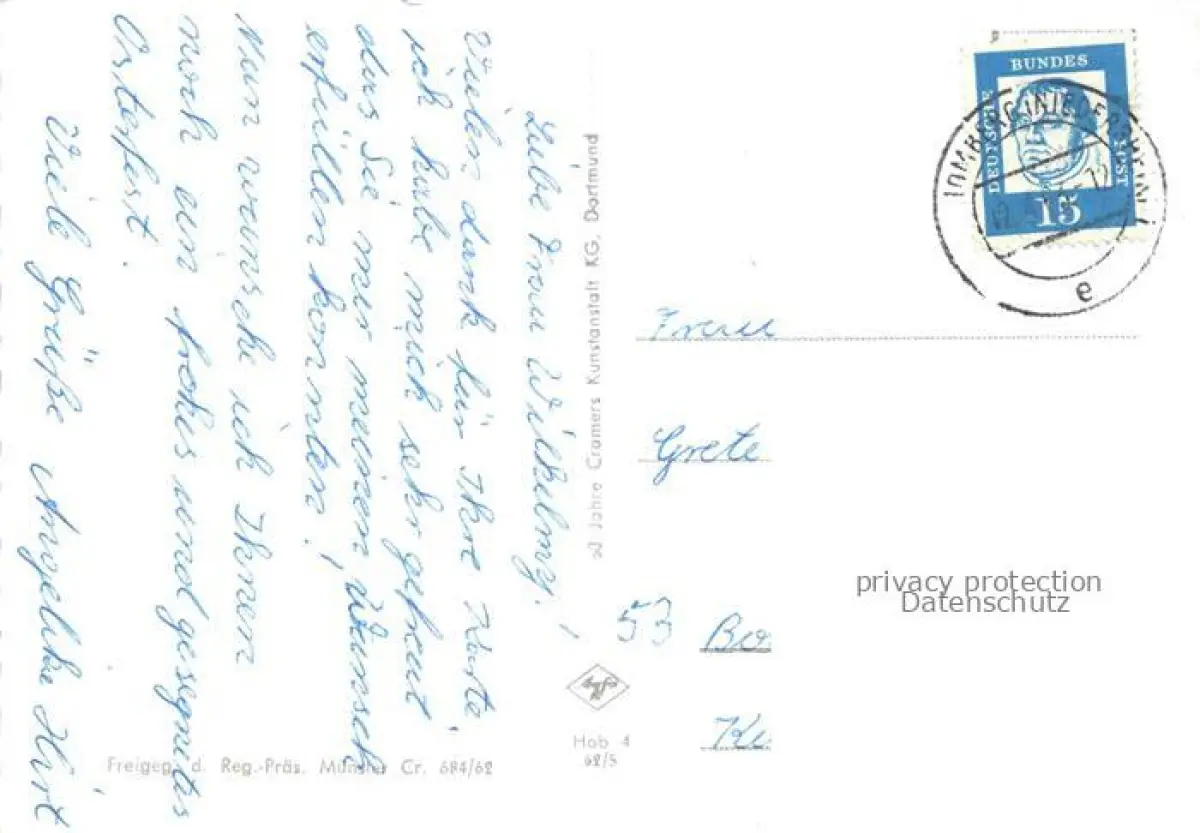 Liebe Frau Wilkelmy!
Vielen dank für Ihre Karte,
ich habe mich sehr gefreut
das Sie mir meinen Wunsch
erfüllen konnten!
Nun wünsche ich Ihnen
noch ein frohes und gesegnetes
Osterfest.
Viele Grüße Angelika Hirt
50 Jahre Cramers Kunstanstalt KG, Dortmund
Freigeg. d. Reg.-Präs. Münster Cr. 684/62
Hob 4
62/5
DEUTSCHE BUNDESPOST
15
HOMBERG (NIEDERRHEIN) 1
e
Frau
Grete
53 Bo
Ke
privacy protection
Datenschutz